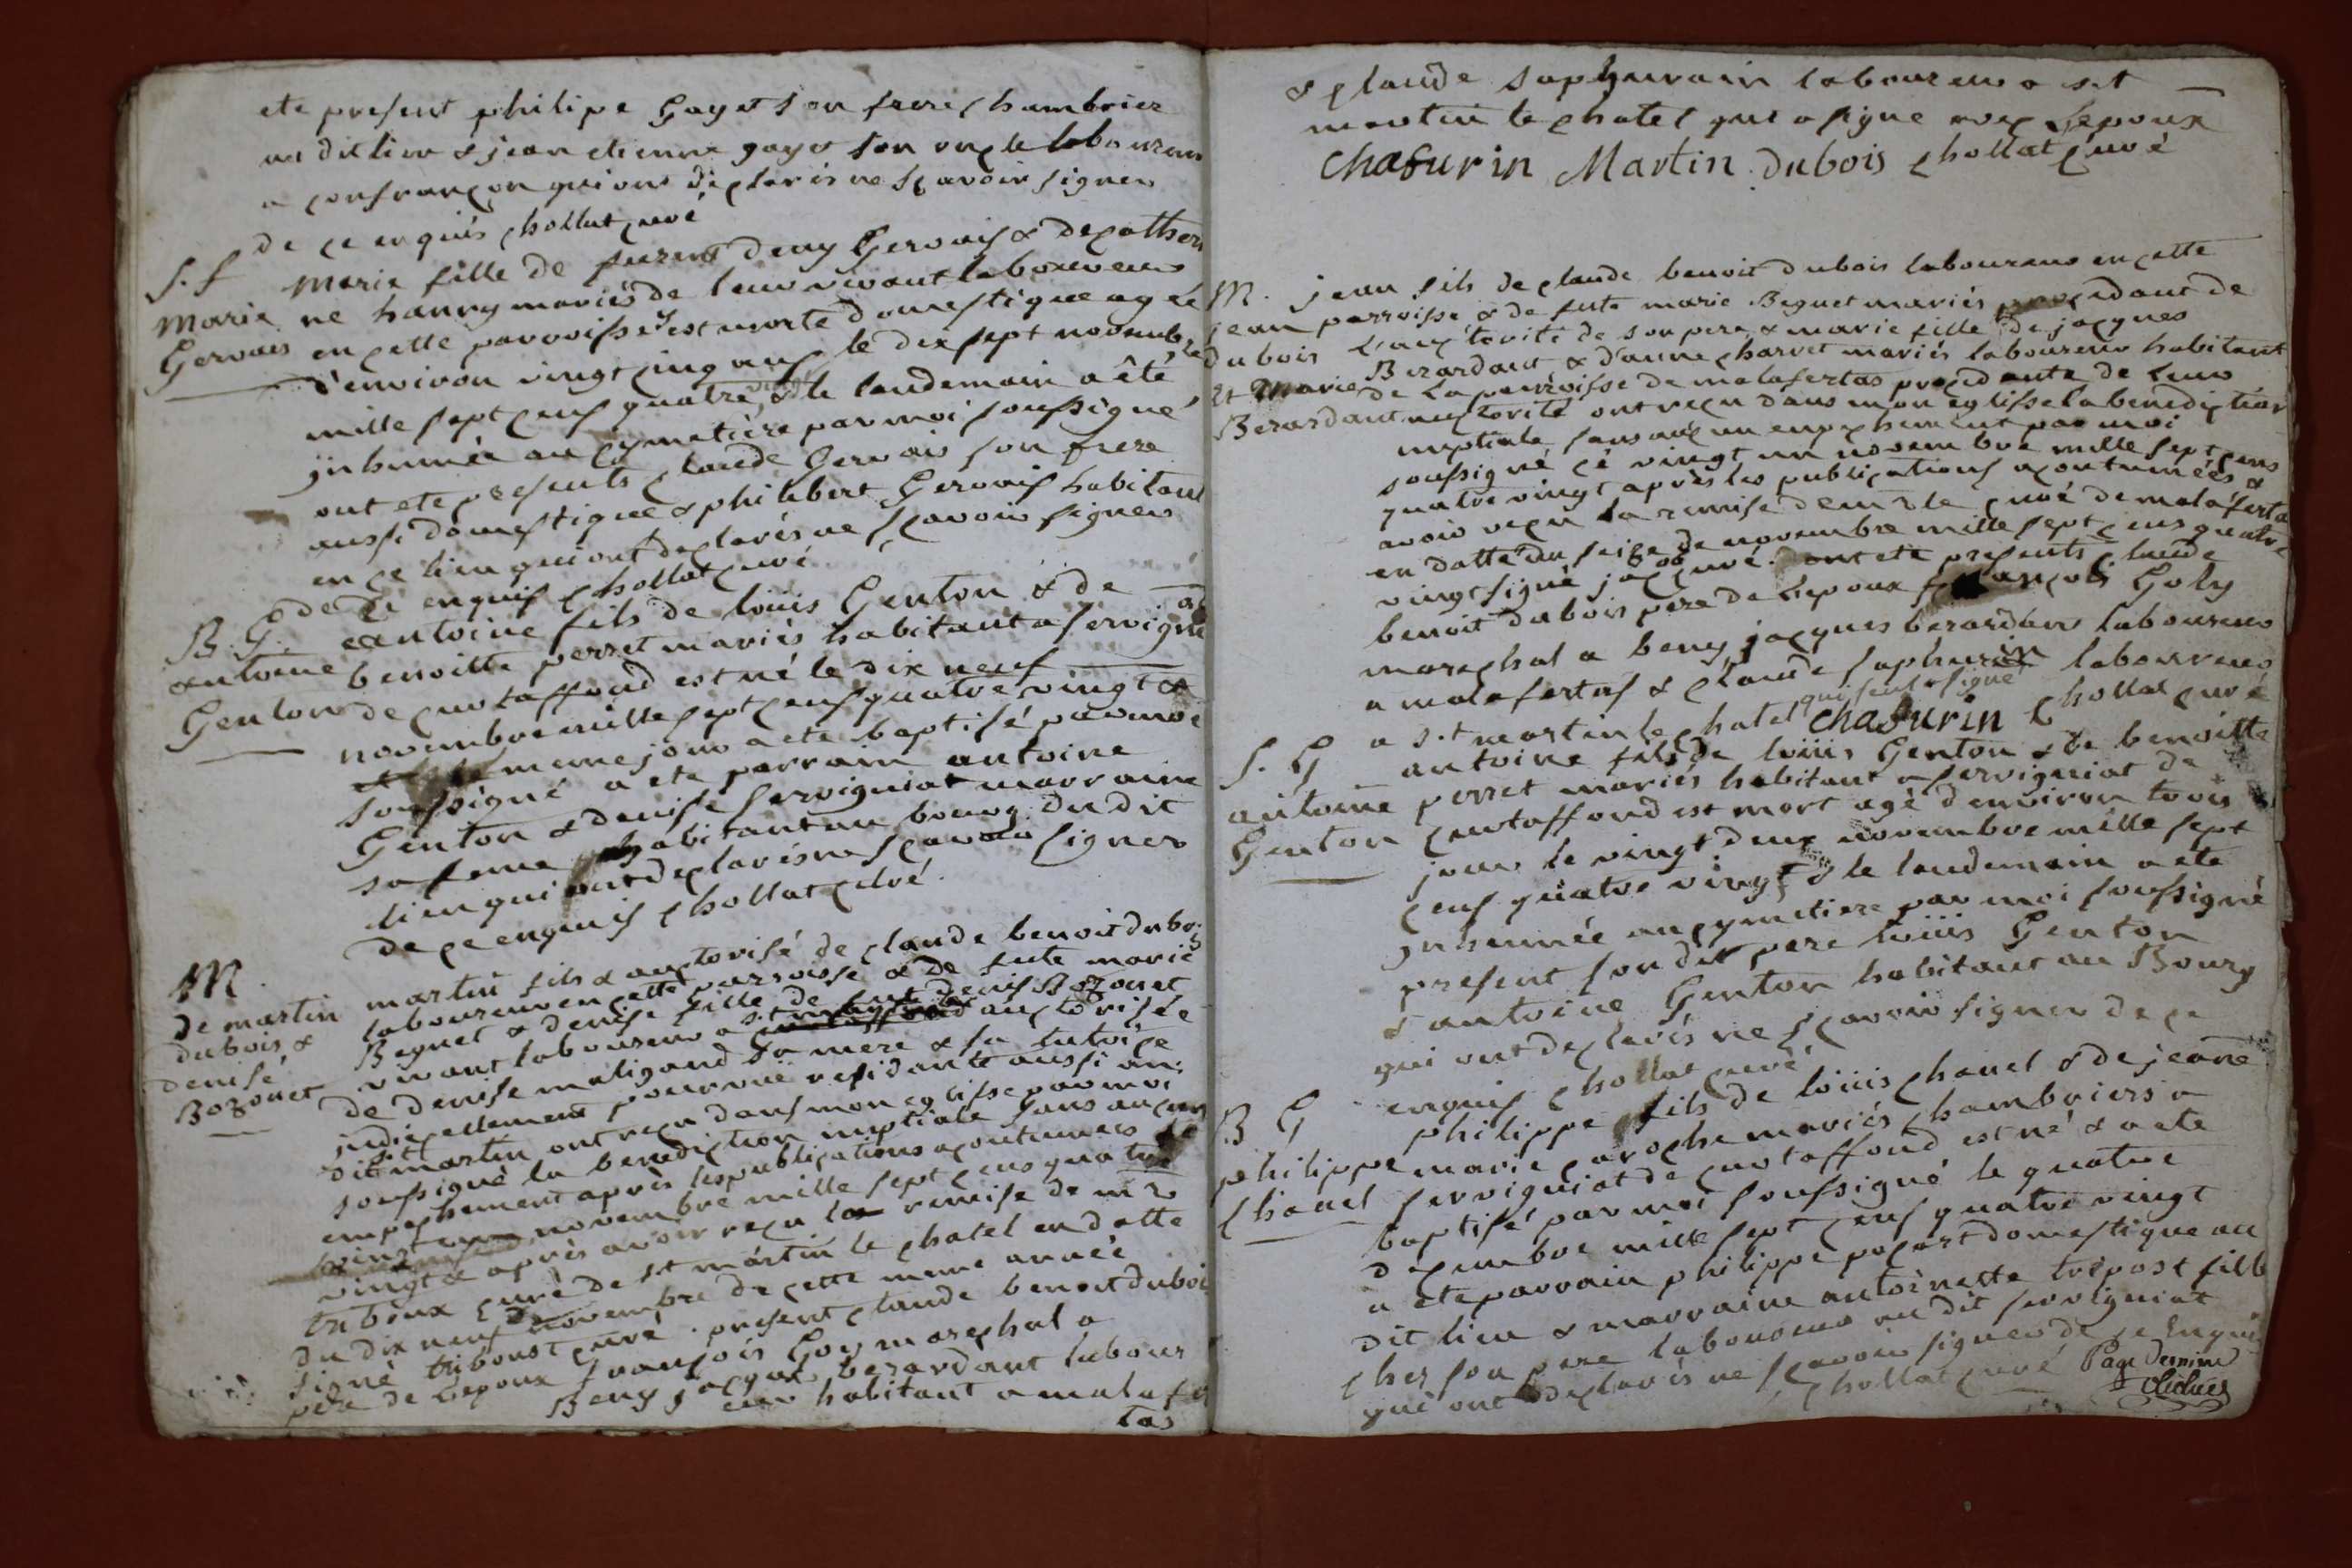 ete present philipe Gayet son frere chambrier
au dit lieu & jean etienne gayet son oncle laboureur
a confrançon qui ont declarés ne sçavoir signer
de ce enquis chollat curé
S. f
Marie Gervais
Marie fille de furent deny Gervais & de catheri
ne hanry mariés de leur vivant laboureurs
en cette parroisse est morte domestique agée
d'environ vingt cinq ans le dix sept novembre
mille sept cens quatre vingt & le landemain a été
inhumée au cymetière par moi soussigné
ont ete presents claude Gervais son frere
aussi domestique & philibert Gervais habitant
en ce lieu qui ont declarés ne sçavoir signer
de ce enquis chollat curé
B. G.
antoine Genton
antoine fils de louis Genton & de
benoitte perret mariés habitant a servignia
de curtaffond est né le dix neuf
novembre mille sept cens quatre vingt &
le meme jour a ete baptisé par moi
soussigné a ete parrain antoine
Genton & denise servigniat marraine
sa feme habitant au bourg du dit
lieu qui ont declarés ne sçavoir signer
de ce enquis chollat curé.
M.
de martin
dubois &
denise
Bozonet
martin fils & auctorisé de claude benoit dubois
laboureur en cette parroisse & de fute marie
Beguet & denise fille de fut denis Bozonet
vivant laboureur a st martin auctorisée
de denise maligand sa mere & sa tutrice
judiciellement pourvue residante aussi au
dit martin ont reçu dans mon eglisse par moi
soussigné la benediction nuptiale sans aucun
empechement après les publications acoutumées le
vingt un novembre mille sept cens quatre
vingt & après avoir reçu la remise de mr
triboux curé de st martin le chatel en datte
du dix neuf novembre de cette meme année
signé triboust curé. present claude benoit dubois
pere de l'epoux françois Goy marechal a
Beny jacque berardant labour
eur habitant a malafer
tas
& claude saphurain laboureur a st
martin le chatel qui a signe avec l'epoux
Chafurin Martin dubois chollat curé
M.
jean
dubois
et Marie
Berardant
jean fils de claude benoit dubois laboureur en cette
parroisse & de fute marie Beguet mariés procedant de
l'auctorité de son pere & marie fille de jacques
Berardant & d'anne charvet mariés laboureur habitant
de la parroisse de malafertas procedante de leur
auctorité ont reçu dans mon eglisse la benediction
nuptiale sans aucun empechement par moi
soussigné ce vingt un novembre mille sept cens
quatre vingt après les publications acoutumées &
avoir reçu la remise de mr le curé de malaferta
en datte du seize de novembre mille sept cens quatre
vingt signé jacq curé. ont ete presents claude
benoit dubois pere de l'epoux françois Goly
marechal a beny jacques berardan laboureur
a malafertas & claude saphurin laboureur
a st martin le chatel qui seul a signe Chafurin chollat curé
S. G
antoine
Genton
antoine fils de louis Genton & de benoitte
perret mariés habitant a servigniat de
curtaffond est mort agé d'environ trois
jours le vingt deux novembre mille sept
cens quatre vingt & le landemain a ete
inhumée au cymetiere par moi soussigné
present son dit pere louis Genton
& antoine Genton habitant au Bourg
qui ont declarés ne sçavoir signer de ce
enquis chollat curé
B G
philippe
chanel
philippe fils de louis chanel & de jeane
marie caroche mariés chambriers a
servigniat de curtaffond est né & a ete
baptisé par moi soussigné le quatre
decembre mille sept cens quatre vingt
a ete parrain philippe pocart domestique au
dit lieu & marraine antoinette tripost fille
chez son pere laboureur au dit servigniat
qui ont declarés ne sçavoir signer de ce Enquis
chollat curé Page Dernire